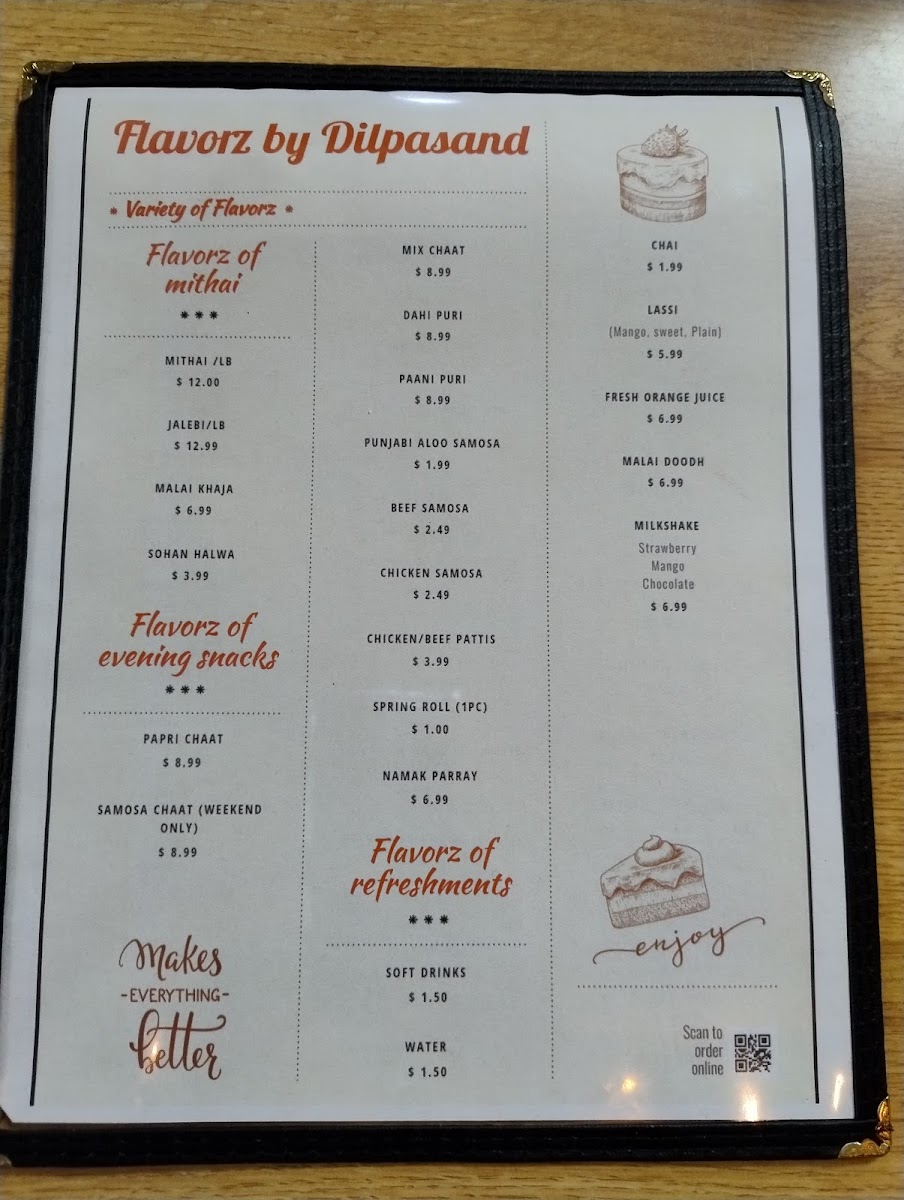 Flavorz by Dilpasand
* Variety of Flavorz *
Flavorz of
mithai
***
MITHAI /LB
$ 12.00
JALEBI/LB
$ 12.99
MALAI KHAJA
$ 6.99
SOHAN HALWA
$ 3.99
Flavorz of
evening snacks
***
PAPRI CHAAT
$ 8.99
SAMOSA CHAAT (WEEKEND
ONLY)
$ 8.99
Makes
-EVERYTHING-
better
MIX CHAAT
$ 8.99
DAHI PURI
$ 8.99
PAANI PURI
$ 8.99
PUNJABI ALOO SAMOSA
$ 1.99
BEEF SAMOSA
$ 2.49
CHICKEN SAMOSA
$ 2.49
CHICKEN/BEEF PATTIS
$ 3.99
SPRING ROLL (1PC)
$ 1.00
NAMAK PARRAY
$ 6.99
Flavorz of
refreshments
***
SOFT DRINKS
$ 1.50
WATER
$ 1.50
CHAI
$ 1.99
LASSI
(Mango, sweet, Plain)
$ 5.99
FRESH ORANGE JUICE
$ 6.99
MALAI DOODH
$ 6.99
MILKSHAKE
Strawberry
Mango
Chocolate
$ 6.99
enjoy
Scan to
order
online